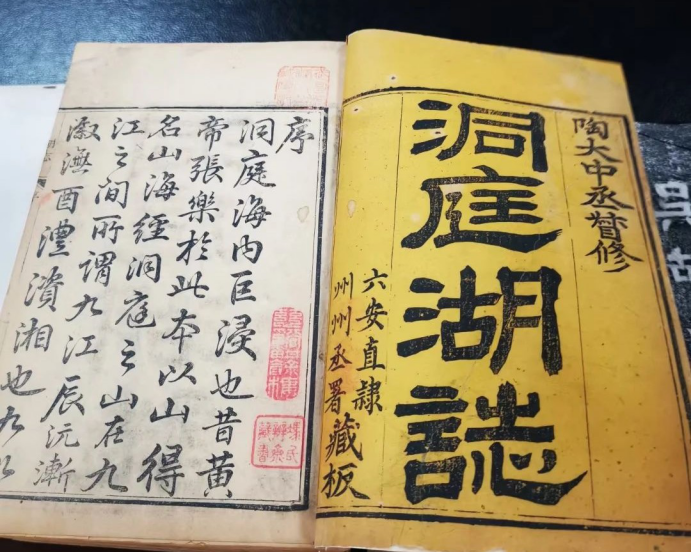 陶大中丞督修
洞庭湖誌
六安直隸
州州丞署
藏板
序
洞庭海内巨浸也昔黃
帝張樂於此本以山得
名山海經洞庭之山在九
江之間所謂九江辰沅漸
漵潕酉澧澬湘也九